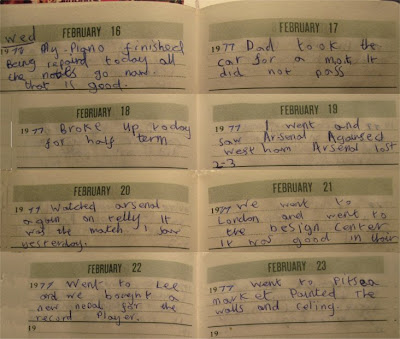 Wed
FEBRUARY 16
1977 My Piano finished
Being repaired today all
the notes go now.
that is good.
FEBRUARY 17
1977 Dad took the
car for a mot it
did not pass
FEBRUARY 18
1977 Broke up today
for half term
FEBRUARY 19
1977 I went and
saw Arsenal Against
west ham Arsenal lost
2-3
FEBRUARY 20
1977 Watched arsenal
again on telly It
was the match I saw
yesterday.
FEBRUARY 21
1977 We went to
London and went to
the Design center
it was good in their
FEBRUARY 22
1977 Went to Lee
and we bought a
new nedal for the
record Player.
19
FEBRUARY 23
1977 went to Pitsea
market Painted the
walls and celing.
19